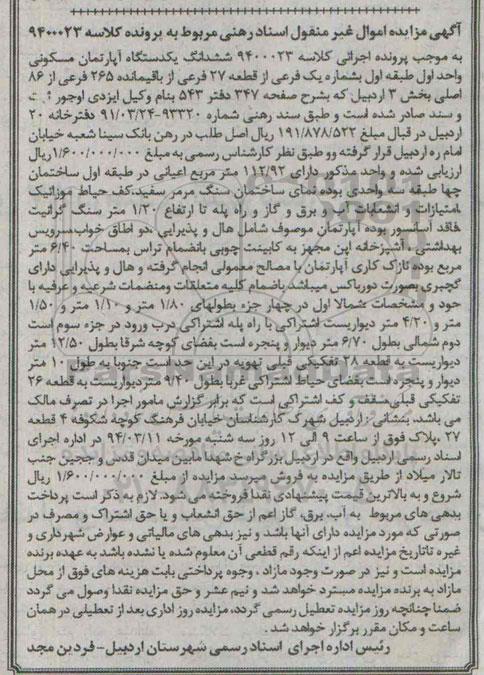 آگهی مزایده اموال غیر منقول اسناد رهنی مربوط به پرونده کلاسه ۹۴۰۰۰۲۳
به موجب پرونده اجرائی کلاسه ۹۴۰۰۰۲۳ ششدانگ یکدستگاه آپارتمان مسکونی
واحد اول طبقه اول بشماره یک فرعی از قطعه ۲۷ فرعی از باقیمانده ۲۶۵ فرعی از ۸۶
اصلی بخش ۳ اردبیل که بشرح صفحه ۳۴۷ دفتر ۵۴۳ بنام وکیل ایزدی اوجور ثبت
و سند صادر شده است و طبق سند رهنی شماره ۹۳۳۲۰-۹۱/۰۳/۲۴ دفترخانه ۲۰
اردبیل در قبال مبلغ ۱۹۱/۸۷۸/۵۲۲ ریال اصل طلب در رهن بانک سینا شعبه خیابان
امام ره اردبیل قرار گرفته وو طبق نظر کارشناس رسمی به مبلغ ۱/۶۰۰/۰۰۰/۰۰۰ریال
ارزیابی شده و واحد مذکور دارای ۱۱۲/۹۲ متر مربع اعیانی در طبقه اول ساختمان
چها طبقه سه واحدی بوده نمای ساختمان سنگ مرمر سفید،کف حیاط موزائیک
،امتیازات و انشعابات آب و برق و گاز و راه پله تا ارتفاع ۱/۲۰ متر سنگ گرانیت
،فاقد آسانسور بوده آپارتمان موصوف شامل هال و پذیرایی ،دو اطاق خواب،سرویس
بهداشتی ،آشپزخانه اپن مجهز به کابینت چوبی بانضمام تراس بمساحت ۶/۴۰ متر
مربع بوده نازک کاری آپارتمان با مصالح معمولی انجام گرفته و هال و پذیرایی دارای
گچبری بصورت دورباکس میباشد باضمام کلیه متعلقات ومنضمات شرعیه و عرفیه با
حود و مشخصات شمالا اول در چهار جزء بطولهای ۱/۸۰ متر و ۱/۱۰ متر و ۱/۵۰
متر و ۴/۲۰ متر دیواریست اشتراکی با راه پله اشتراکی درب ورود در جزء سوم است
دوم شمالی بطول ۶/۷۰ متر دیوار و پنجره است بفضای کوچه شرقا بطول ۱۲/۵۰ متر
دیواریست به قطعه ۲۸ تفکیکی قبلی تهویه در این حد است جنوبا به طول ۱۰ متر
دیوار و پنجره است بفضای حیاط اشتراکی غربا بطول ۹/۴۰ متردیواریست به قطعه ۲۶
تفکیکی قبلی،سقف و کف اشتراکی است که برابر گزارش مامور اجرا در تصرف مالک
می باشد، بنشانی : اردبیل شهرک کارشناسان خیابان فرهنگ کوچه شکوفه ۴ قطعه
۲۷ ،پلاک فوق از ساعت ۹ الی ۱۲ روز سه شنبه مورخه ۹۴/۰۳/۱۱ در اداره اجرای
اسناد رسمی اردبیل واقع در اردبیل بزرگراه خ شهدا مابین میدان قدس و ججین جنب
تالار میلاد از طریق مزایده به فروش میرسد مزایده از مبلغ ۱/۶۰۰/۰۰۰/۰۰۰ ریال
شروع و به بالاترین قیمت پیشنهادی نقدا فروخته می شود. لازم به ذکر است پرداخت
بدهی های مربوط به آب، برق، گاز اعم از حق انشعاب و یا حق اشتراک و مصرف در
صورتی که مورد مزایده دارای آنها باشد و نیز بدهی های مالیاتی و عوارض شهرداری و
غیره تاتاریخ مزایده اعم از اینکه رقم قطعی آن معلوم شده یا نشده باشد به عهده برنده
مزایده است و نیز در صورت وجود مازاد ، وجوه پرداختی بابت هزینه های فوق از محل
مازاد به برنده مزایده مسترد خواهد شد و نیم عشر و حق مزایده نقدا وصول می گردد
ضمنا چنانچه روز مزایده تعطیل رسمی گردد، مزایده روز اداری بعد از تعطیلی در همان
ساعت و مکان مقرر برگزار خواهد شد .
رئیس اداره اجرای اسناد رسمی شهرستان اردبیل - فردین مجد